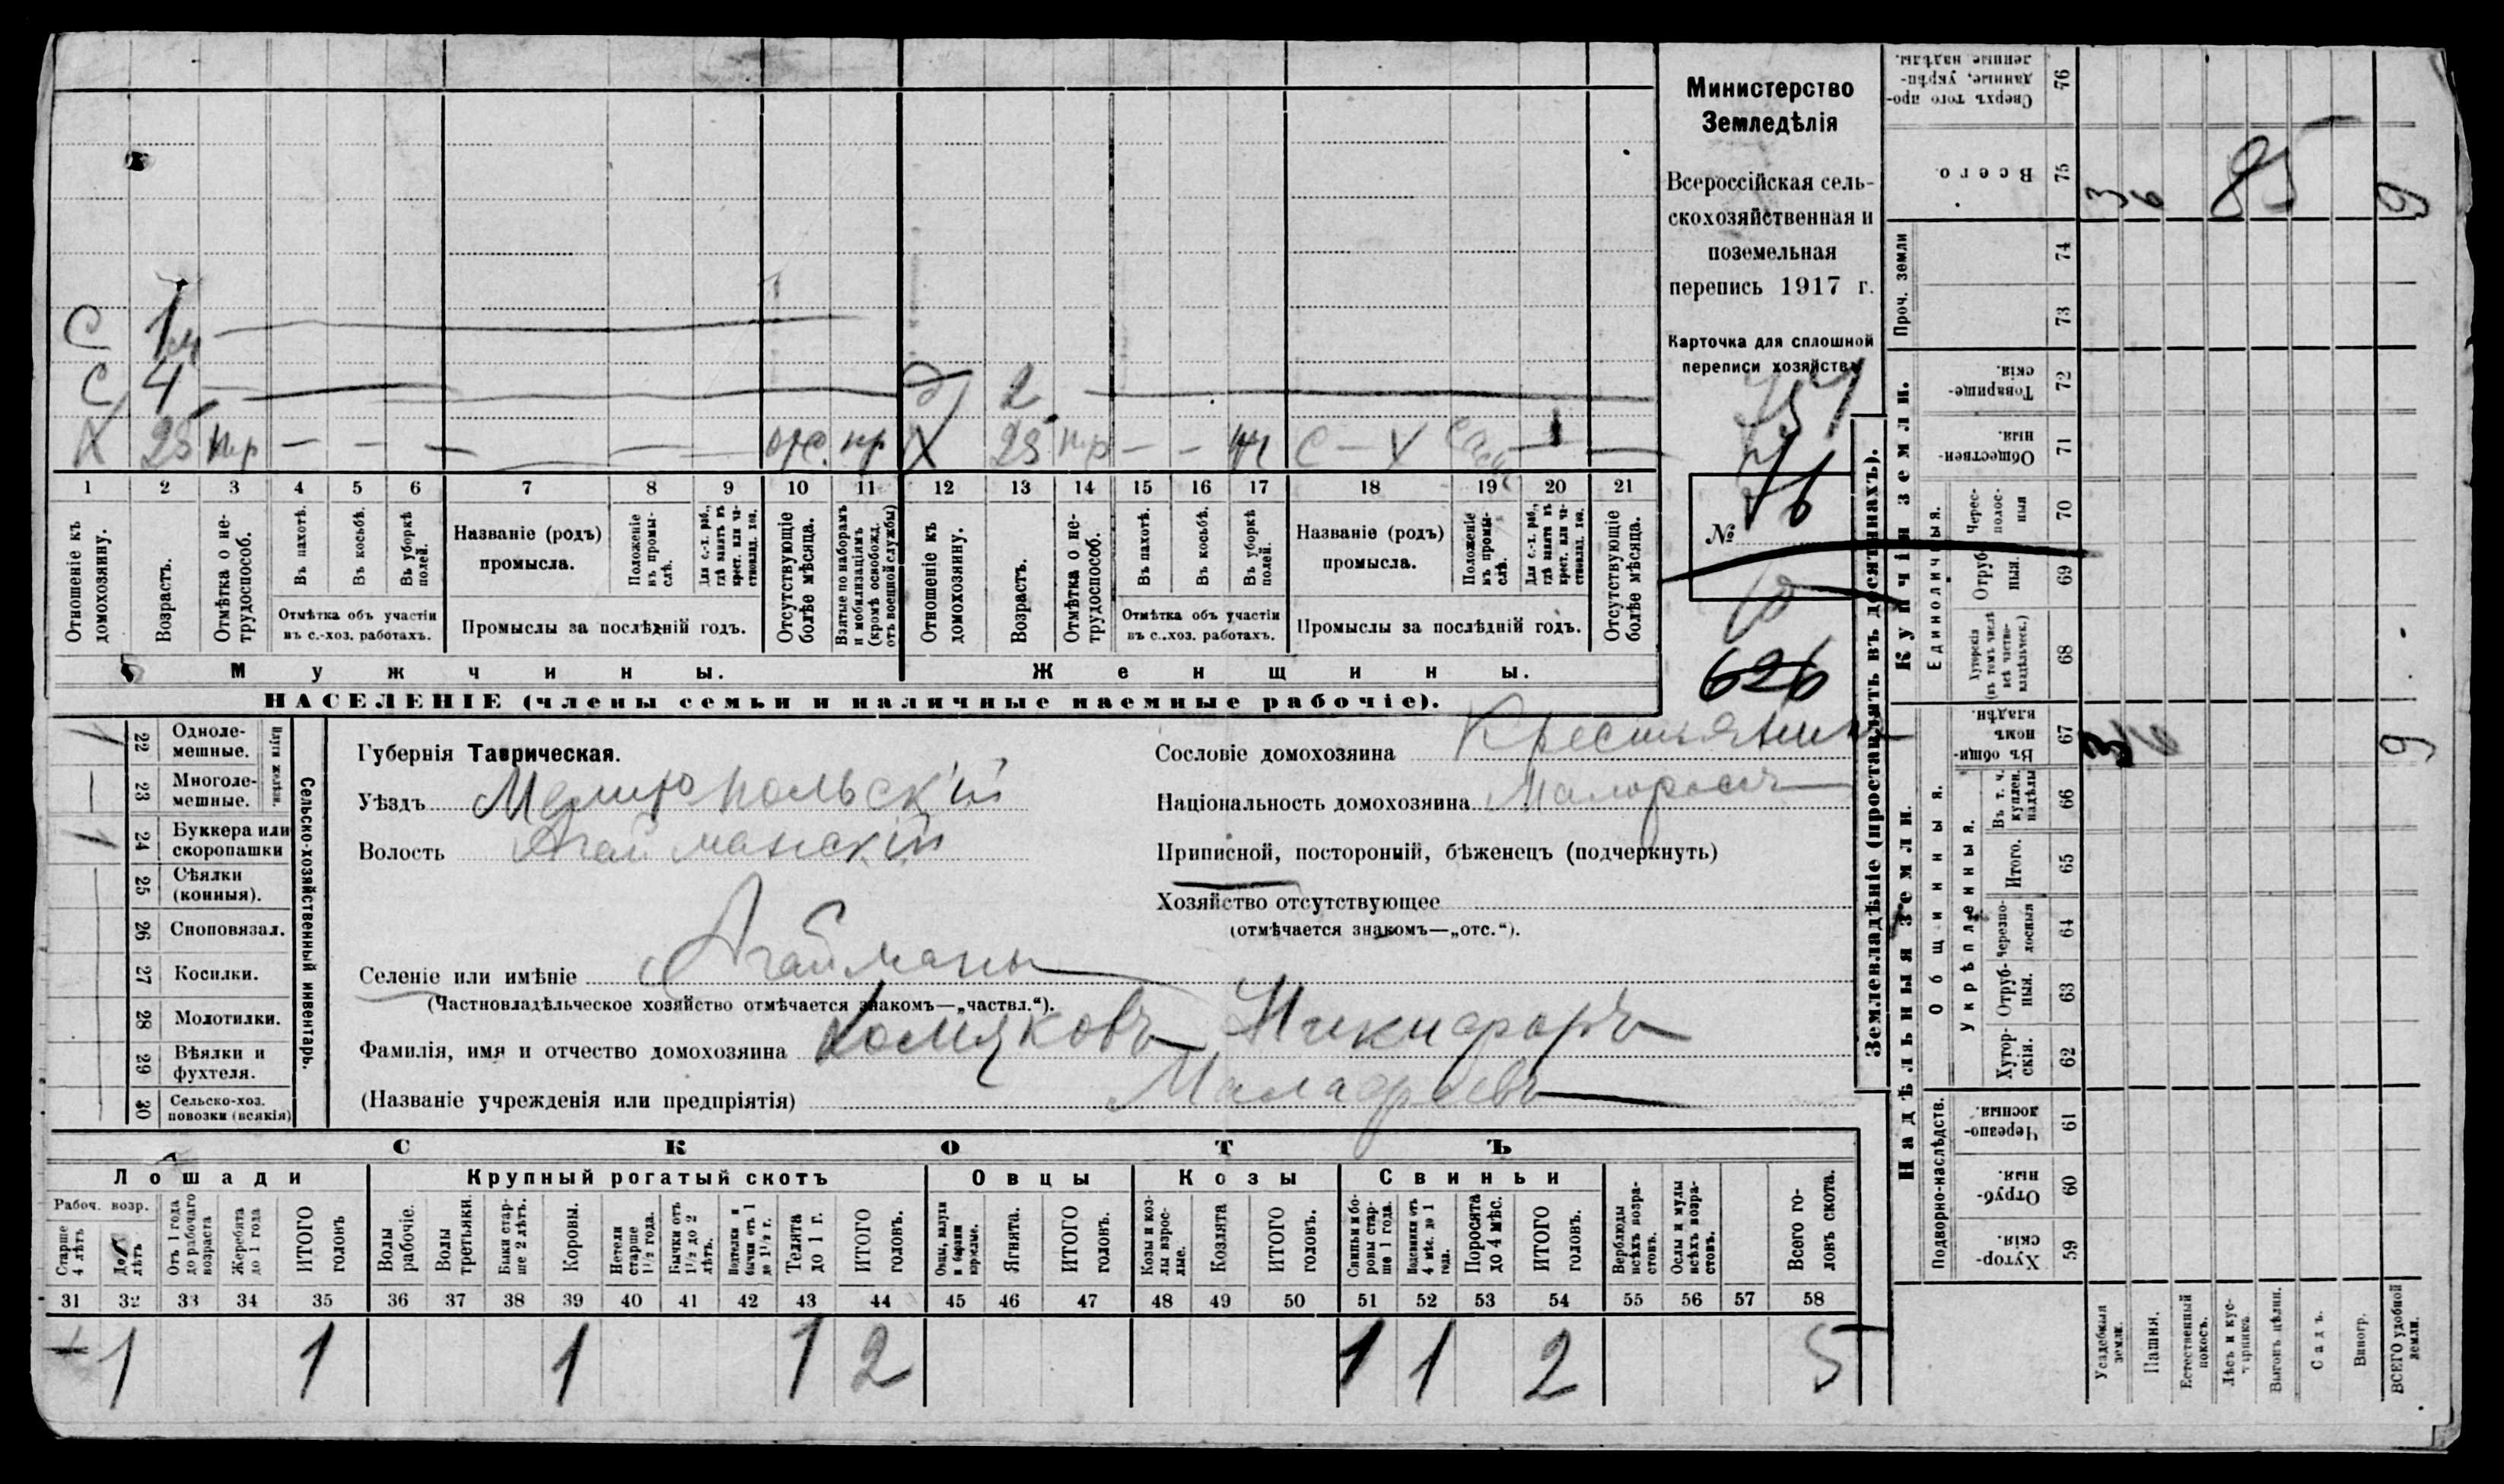 Министерство
Земледѣлія
Всероссійская сель-
скохозяйственная и
поземельная
перепись 1917 г.
Карточка для сплошной
переписи хозяйствъ
№ 76
626
С 1 м
С 4
2
Х 25 нр — — — — — отс. нр Х 23 нр — — жн С — Х
1 2 3 4 5 6 7 8 9 10 11 12 13 14 15 16 17 18 19 20 21
Отношеніе къ домохозяину.
Возрастъ.
Отмѣтка о не-трудоспособ.
Въ пахотѣ.
Въ косьбѣ.
Въ уборкѣ полей.
Отмѣтка объ участіи
въ с.-хоз. работахъ.
Названіе (родъ)
промысла.
Положеніе въ промы-слѣ.
Для с.-х. раб., гдѣ занятъ въ крест. или ча-стновлад. хоз.
Промыслы за послѣдній годъ.
Отсутствующіе болѣе мѣсяца.
Взятые по наборамъ и мобилизаціямъ (кромѣ освобожд. отъ военной службы)
Отношеніе къ домохозяину.
Возрастъ.
Отмѣтка о не-трудоспособ.
Въ пахотѣ.
Въ косьбѣ.
Въ уборкѣ полей.
Отмѣтка объ участіи
въ с.-хоз. работахъ.
Названіе (родъ)
промысла.
Положеніе въ промы-слѣ.
Для с.-х. раб., гдѣ занятъ въ крест. или ча-стновлад. хоз.
Промыслы за послѣдній годъ.
Отсутствующіе болѣе мѣсяца.
Мужчины.
Женщины.
НАСЕЛЕНІЕ (члены семьи и наличные наемные рабочіе).
Сельско-хозяйственный инвентарь.
Плуги желѣзн.
22 Одноле-мешные.
23 Многоле-мешные.
24 Буккера или скоропашки
25 Сѣялки (конныя).
26 Сноповязал.
27 Косилки.
28 Молотилки.
29 Вѣялки и фухтеля.
30 Сельско-хоз. повозки (всякія)
Губернія Таврическая.
Уѣздъ Мелитопольскій
Волость Агайманскій
Селеніе или имѣніе Агайманы
(Частновладѣльческое хозяйство отмѣчается знакомъ—„частвл.“).
Фамилія, имя и отчество домохозяина Хомяковъ Никифоръ
(Названіе учрежденія или предпріятія) Малафеевъ
Сословіе домохозяина Крестьянинъ
Національность домохозяина Малороссъ
Приписной, посторонній, бѣженецъ (подчеркнуть)
Хозяйство отсутствующее
(отмѣчается знакомъ—„отс.“).
СКОТЪ
Лошади
Крупный рогатый скотъ
Овцы
Козы
Свиньи
Рабоч. возр.
Старше 4 лѣтъ
До 4 лѣтъ
Отъ 1 года до рабочаго возраста
Жеребята до 1 года
ИТОГО головъ
Волы рабочіе.
Волы третьяки.
Быки стар-ше 2 лѣтъ.
Коровы.
Нетели старше 1½ года.
Бычки отъ 1½ до 2 лѣтъ.
Подтелки и бычки отъ 1 до 1½ г.
Телята до 1 г.
ИТОГО головъ.
Овцы, валухи и бараны взрослые.
Ягнята.
ИТОГО головъ.
Козы и коз-лы взрос-лые.
Козлята
ИТОГО головъ.
Свиньи и бо-ровы стар-ше 1 года.
Подсвинки отъ 4 мѣс. до 1 года.
Поросята до 4 мѣс.
ИТОГО головъ.
Верблюды всѣхъ возра-стовъ.
Ослы и мулы всѣхъ возра-стовъ.
Всего го-ловъ скота.
31 32 33 34 35 36 37 38 39 40 41 42 43 44 45 46 47 48 49 50 51 52 53 54 55 56 57 58
1 1 1 1 2 1 1 2 5
Землевладѣніе (проставлять въ десятинахъ).
Надѣльныя земли.
Купчія земли.
Проч. земли
Подворно-наслѣдств.
Общинныя.
Укрѣпленныя.
Единоличныя.
Хутор-скія. 59
Отруб-ныя. 60
Черезпо-лосныя. 61
Хутор-скія. 62
Отруб-ныя. 63
Черезпо-лосныя 64
Итого. 65
Въ т. ч. куплен. надѣлы 66
Въ общин-номъ владѣн. 67
3 6 9
Хуторскія (въ томъ числѣ всѣ частно-владѣльческ.) 68
Отруб-ныя. 69
Черес-полос-ныя 70
Обществен-ныя. 71
Товарище-скія. 72
73
74
Всего. 75
3 6 85 9
Сверхъ того про-данные, укрѣп-ленные надѣлы. 76
Усадебная земля.
Пашня.
Естественный покосъ.
Лѣсъ и кус-тарникъ.
Выгонъ цѣлин.
Садъ.
Виногр.
ВСЕГО удобной земли.